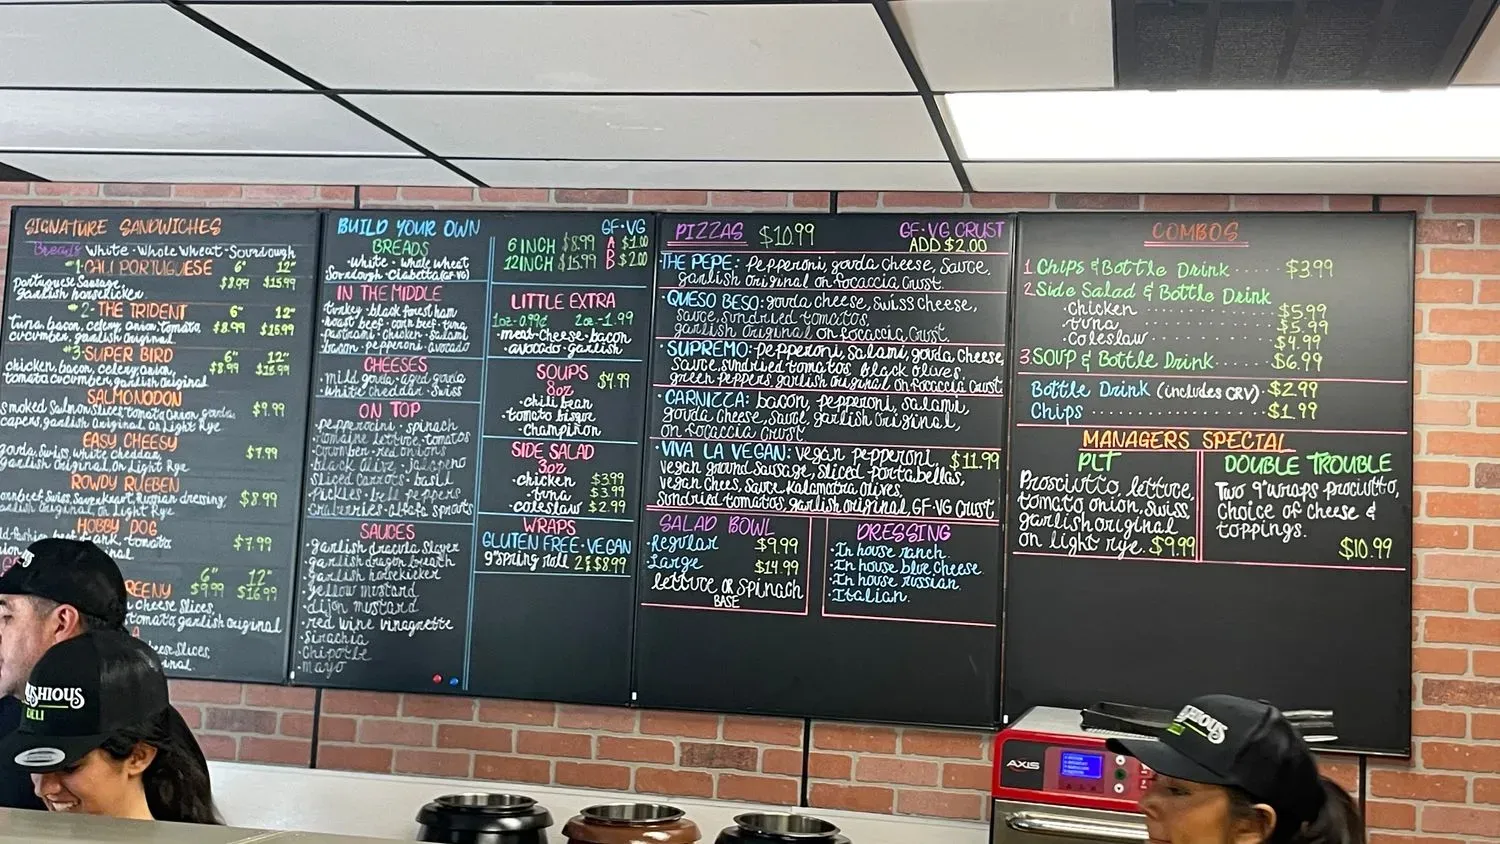 SIGNATURE SANDWICHES
Breads White · Whole Wheat · Sourdough
#1 · CALI PORTUGUESE 6" 12"
Portuguese Sausage, $8.99 $15.99
garlish horsekicker
#2 · THE TRIDENT 6" 12"
Tuna, bacon, celery, onion, tomato, $8.99 $15.99
cucumber, garlish original
#3 · SUPER BIRD 6" 12"
chicken, bacon, celery, onion, $8.99 $15.99
tomato, cucumber, garlish original
SALMONODON
Smoked Salmon slices, tomato, onion, gouda, $9.99
capers, garlish original, on Light Rye
EASY CHEESY
gouda, Swiss, white cheddar, $7.99
garlish original, on Light Rye
ROWDY RUEBEN
Swiss, Sauerkraut, Russian dressing $8.99
garlish original, on Light Rye
HOBBY DOG
beef frank, tomato $7.99
REENY 6" 12"
$9.99 $16.99
cheese slices,
tomato, garlish original
BUILD YOUR OWN
BREADS
· White · Whole Wheat
Sourdough · Ciabatta (GF VG)
IN THE MIDDLE
turkey · black forest ham
· roast beef · corn beef · tuna
· pastrami · chicken · salami
bacon · pepperoni · avocado
CHEESES
· mild gouda · aged gouda
· white cheddar · Swiss
ON TOP
· pepperocini · spinach
· romaine lettuce · tomatos
cucumber · red onions
black olive · jalapeno
sliced carrots · basil
pickles · bell peppers
cranberries · alfafa sprouts
SAUCES
· garlish dracula slayer
· garlish dragon breath
· garlish horsekicker
· yellow mustard
· dijon mustard
· red wine vinagrette
· Sirachia
· Chipotle
· mayo
GF · VG
6 INCH $8.99 A $1.00
12 INCH $15.99 D D $2.00
LITTLE EXTRA
1oz · 0.99¢ 2oz · 1.99
· meat · cheese · bacon
· avocado · garlish
SOUPS
8oz $4.99
· chili bean
· tomato bisque
· champinon
SIDE SALAD
3oz
· chicken $3.99
· tuna $3.99
· coleslaw $2.99
WRAPS
GLUTEN FREE · VEGAN
9" Spring roll 2 E $8.99
PIZZAS $10.99 GF · VG CRUST
ADD $2.00
· THE PEPE: pepperoni, gouda cheese, sauce,
garlish original on focaccia crust.
· QUESO BESO: gouda cheese, swiss cheese,
sauce, sundried tomatos,
garlish original on focaccia crust.
· SUPREMO: pepperoni, salami, gouda cheese,
sauce, sundried tomatos, black olives,
green peppers, garlish original on focaccia crust
· CARNIZZA: bacon, pepperoni, salami,
gouda cheese, sauce, garlish original,
on focaccia crust
· VIVA LA VEGAN: vegan pepperoni, $11.99
vegan ground sausage, sliced portabellas,
vegan chees, sauce, kalamatra olives,
sundried tomatos, garlish original, GF-VG crust
SALAD BOWL
· Regular $9.99
· Large $14.99
lettuce or spinach
BASE
DRESSING
· In house ranch
· In house blue cheese
· In house russian
· Italian.
COMBOS
1. Chips & Bottle Drink ...... $3.99
2. Side Salad & Bottle Drink
· chicken ............ $5.99
· tuna ............ $5.99
· coleslaw ............ $4.99
3. SOUP & Bottle Drink ...... $6.99
Bottle Drink (includes CRV) · $2.99
Chips ............ $1.99
MANAGERS SPECIAL
PLT
Prosciutto, lettuce,
tomato, onion, swiss
garlish original
on light rye. $9.99
DOUBLE TROUBLE
Two 9" wraps prociutto,
choice of cheese &
toppings.
$10.99
SHIOUS
DELI
AXIS